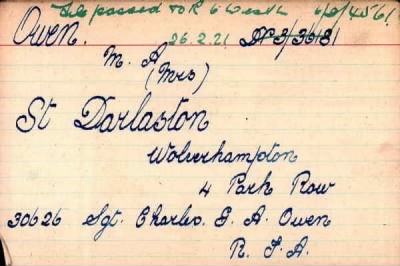 File passed to R 6 West 6/0/4561
Owen. 26.2.21 DP 3/36181
M. A
(Mrs)
St Darlaston
Wolverhampton
4 Park Row
30626 Sgt. Charles. G. A. Owen
R. F. A.